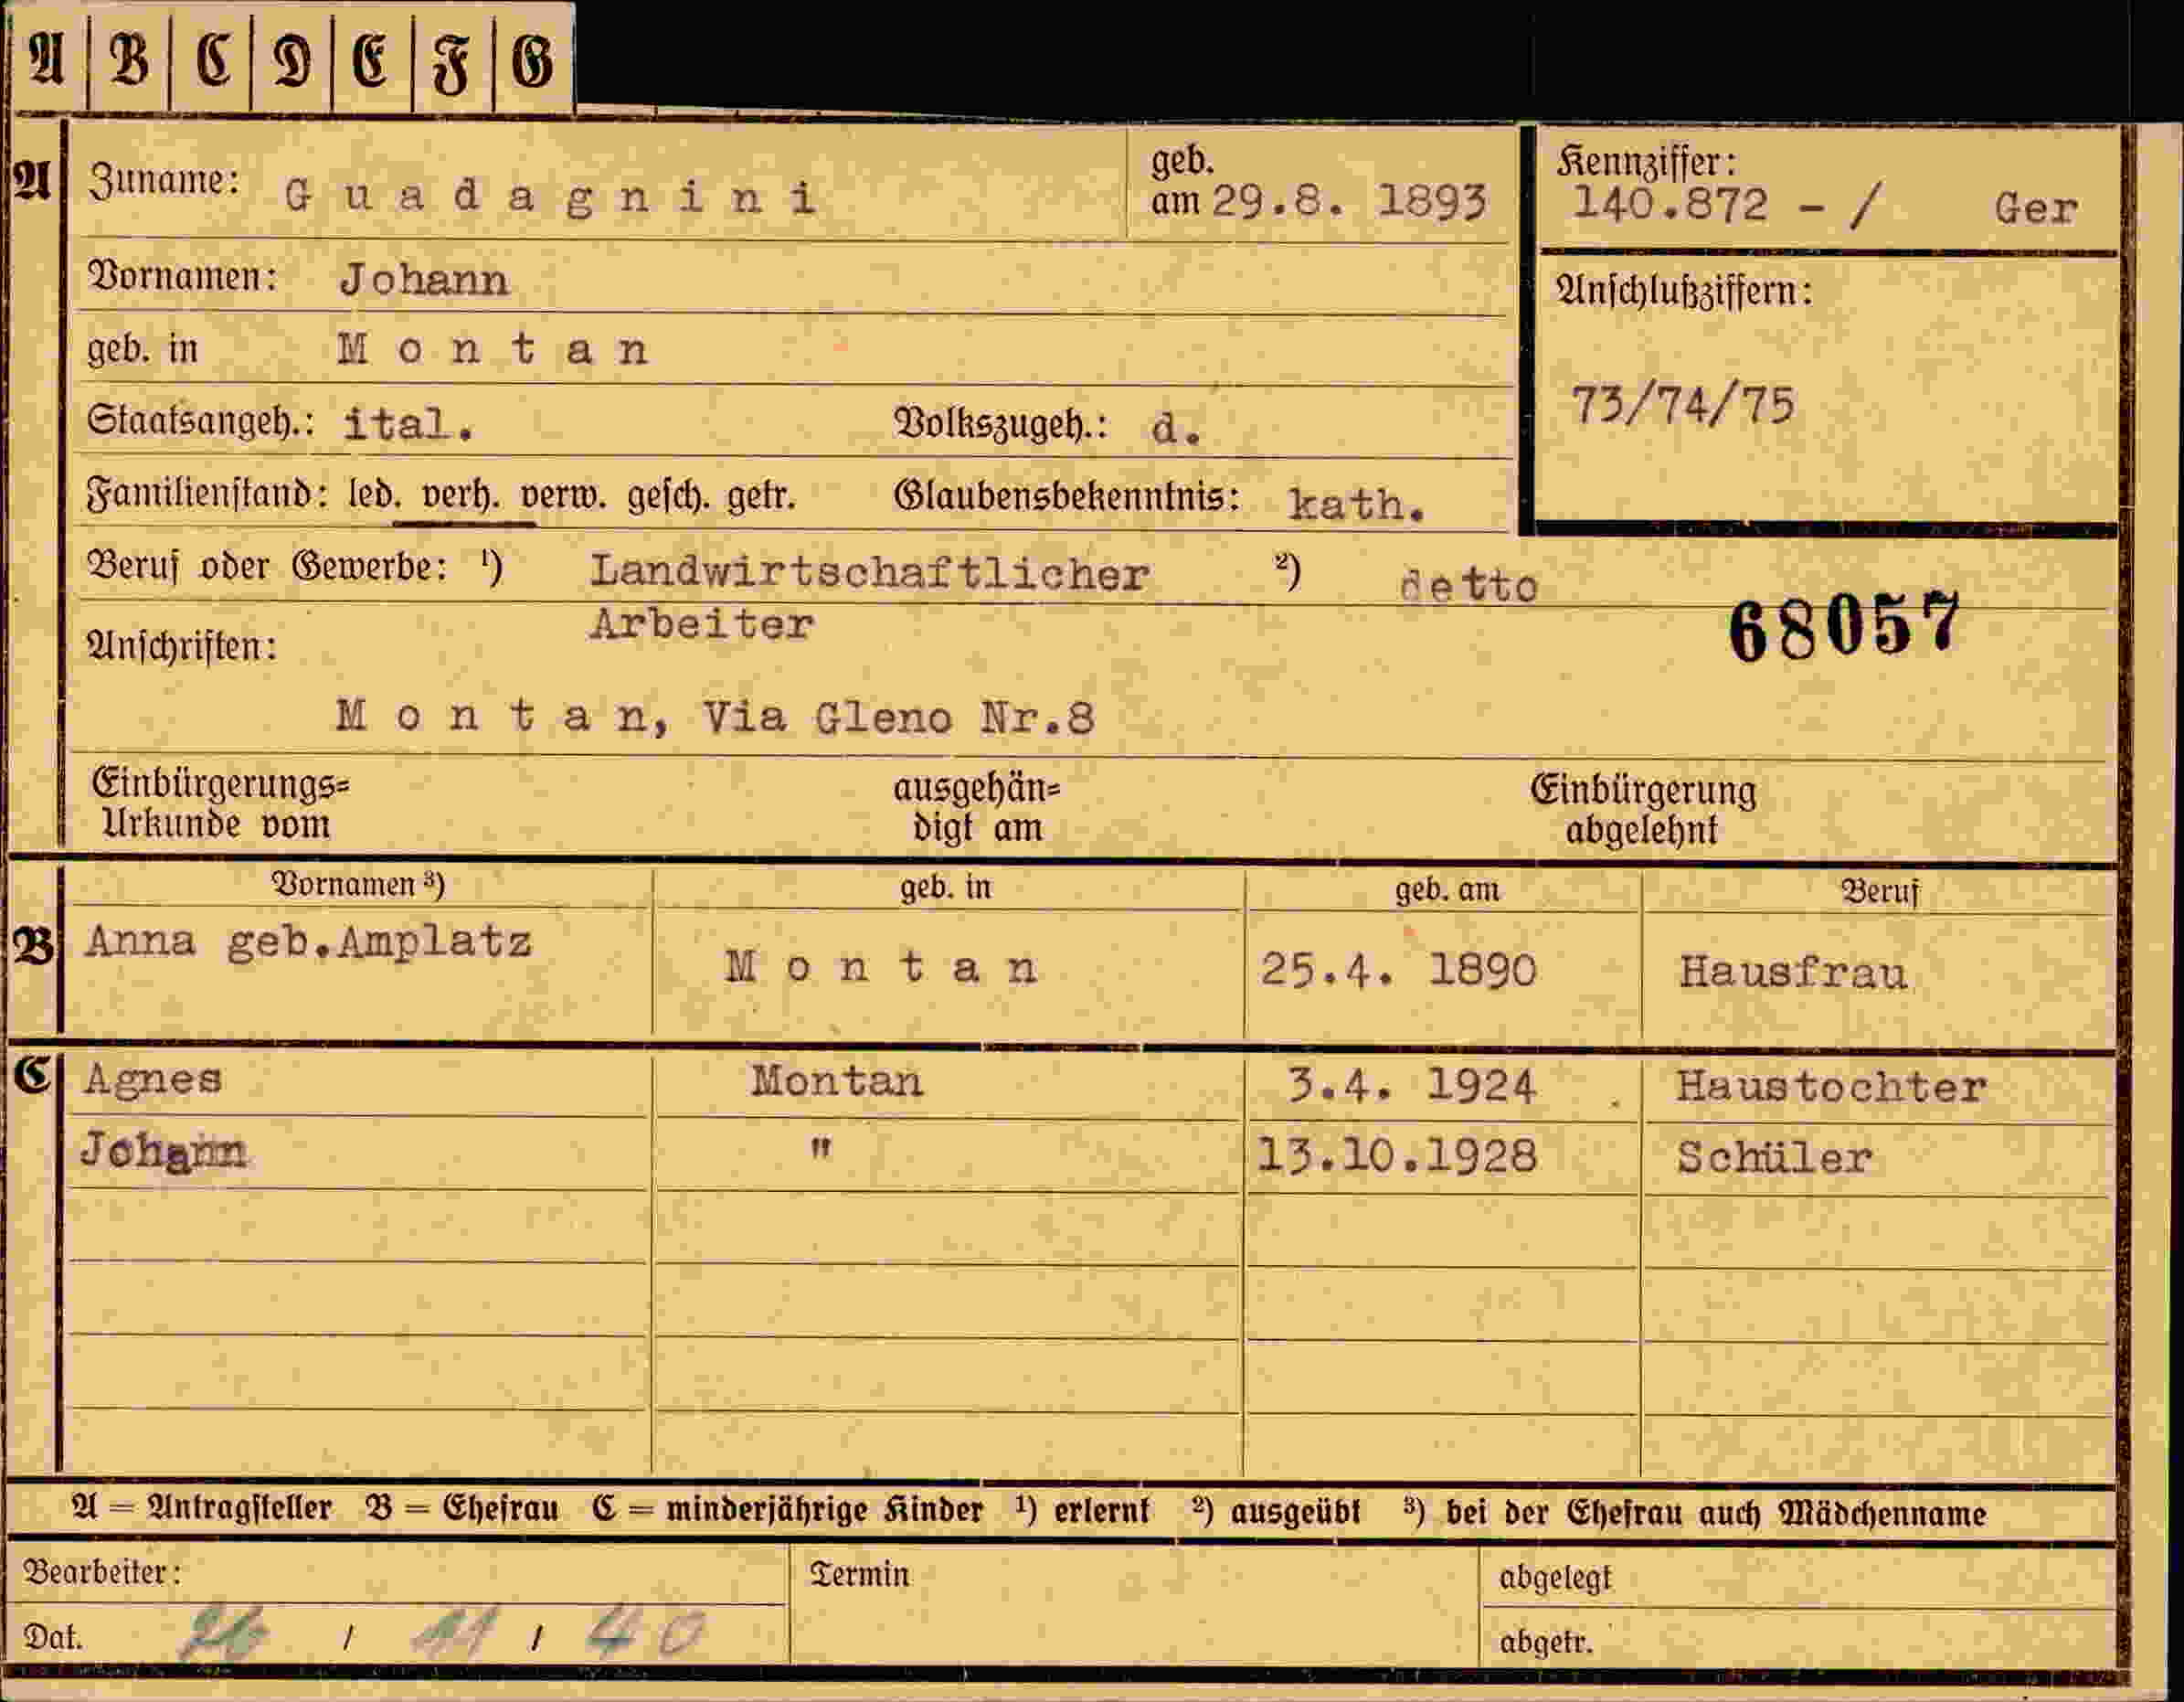 A B C D E F G
A Zuname: Guadagnini geb. am 29.8. 1893 Kennziffer: 140.872 - / Ger
Vornamen: Johann Anschlußziffern:
geb. in Montan
Staatsangeh.: ital. Volkszugeh.: d. 73/74/75
Familienstand: led. verh. verw. gesch. getr. Glaubensbekenntnis: kath.
Beruf oder Gewerbe: ¹) Landwirtschaftlicher ²) detto
Arbeiter 68057
Anschriften:
Montan, Via Gleno Nr.8
Einbürgerungs= ausgehän= Einbürgerung
Urkunde vom digt am abgelehnt
Vornamen ³) geb. in geb. am Beruf
B Anna geb.Amplatz Montan 25.4. 1890 Hausfrau
C Agnes Montan 3.4. 1924 Haustochter
Johann " 13.10.1928 Schüler
A = Antragsteller B = Ehefrau C = minderjährige Kinder ¹) erlernt ²) ausgeübt ³) bei der Ehefrau auch Mädchenname
Bearbeiter: Termin abgelegt
Dat. / 11 / 40 abgetr.